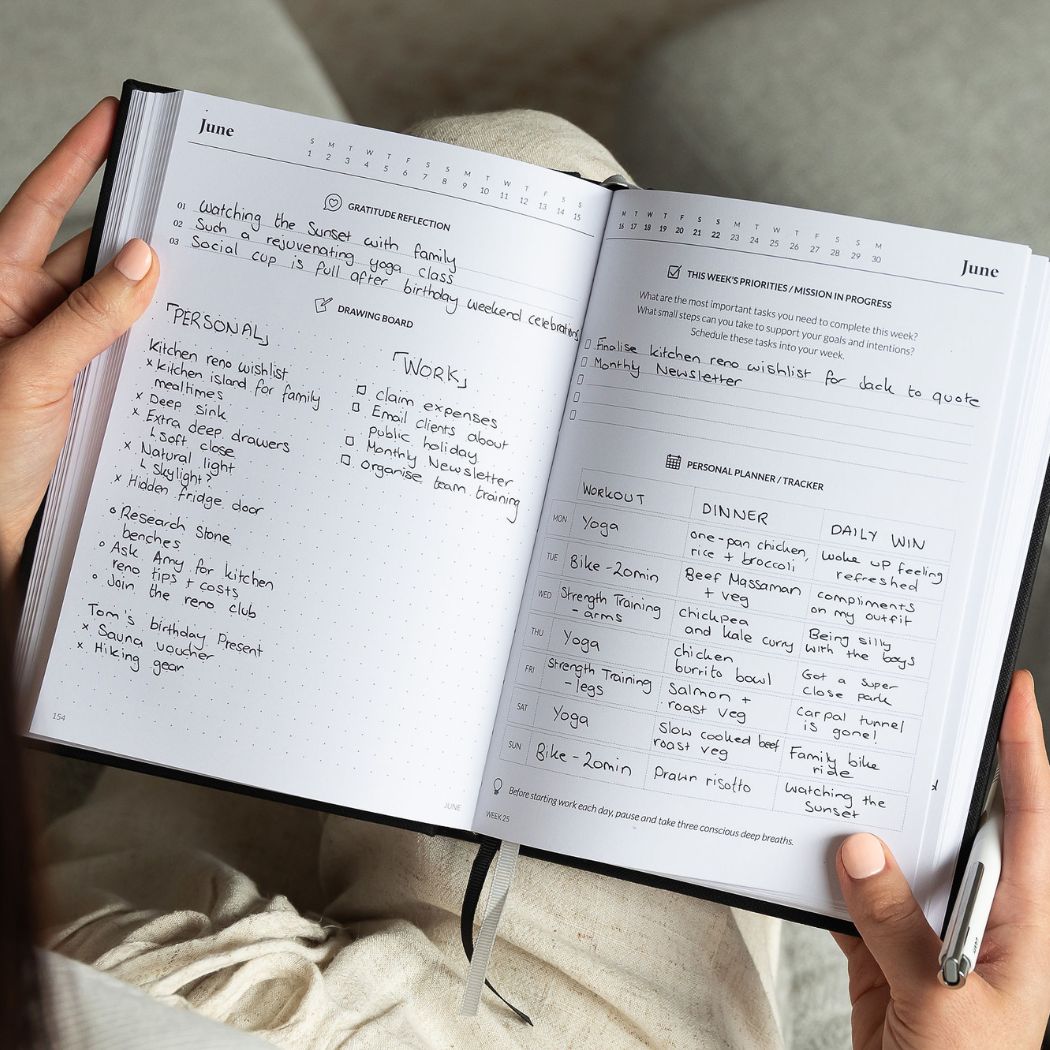 June
S M T W T F S S M T W T F S S
1 2 3 4 5 6 7 8 9 10 11 12 13 14 15
GRATITUDE REFLECTION
01 Watching the Sunset with family
02 Such a rejuvenating yoga class
03 Social cup is full after birthday weekend celebrations
DRAWING BOARD
「PERSONAL」
Kitchen reno wishlist
x kitchen island for family
mealtimes
x Deep sink
x Extra deep drawers
↳ Soft close
x Natural light
↳ skylight?
x Hidden fridge door
o Research Stone
benches
o Ask Amy for kitchen
reno tips + costs
o Join the reno club
Tom's birthday Present
x Sauna voucher
x Hiking gear
「WORK」
□ claim expenses
□ Email clients about
public holiday
□ Monthly Newsletter
□ organise team training
154
JUNE
M T W T F S S M T W T F S S M
16 17 18 19 20 21 22 23 24 25 26 27 28 29 30
June
THIS WEEK'S PRIORITIES / MISSION IN PROGRESS
What are the most important tasks you need to complete this week?
What small steps can you take to support your goals and intentions?
Schedule these tasks into your week.
□ Finalise kitchen reno wishlist for Jack to quote
□ Monthly Newsletter
□
□
□
PERSONAL PLANNER / TRACKER
WORKOUT DINNER DAILY WIN
MON Yoga one-pan chicken, rice + broccoli woke up feeling refreshed
TUE Bike - 20min Beef Massaman + veg compliments on my outfit
WED Strength Training - arms chickpea and kale curry Being silly with the boys
THU Yoga chicken burrito bowl Got a super close park
FRI Strength Training - legs Salmon + roast veg Carpal tunnel is gone!
SAT Yoga Slow cooked beef roast veg Family bike ride
SUN Bike - 20min Prawn risotto Watching the Sunset
Before starting work each day, pause and take three conscious deep breaths.
WEEK 25